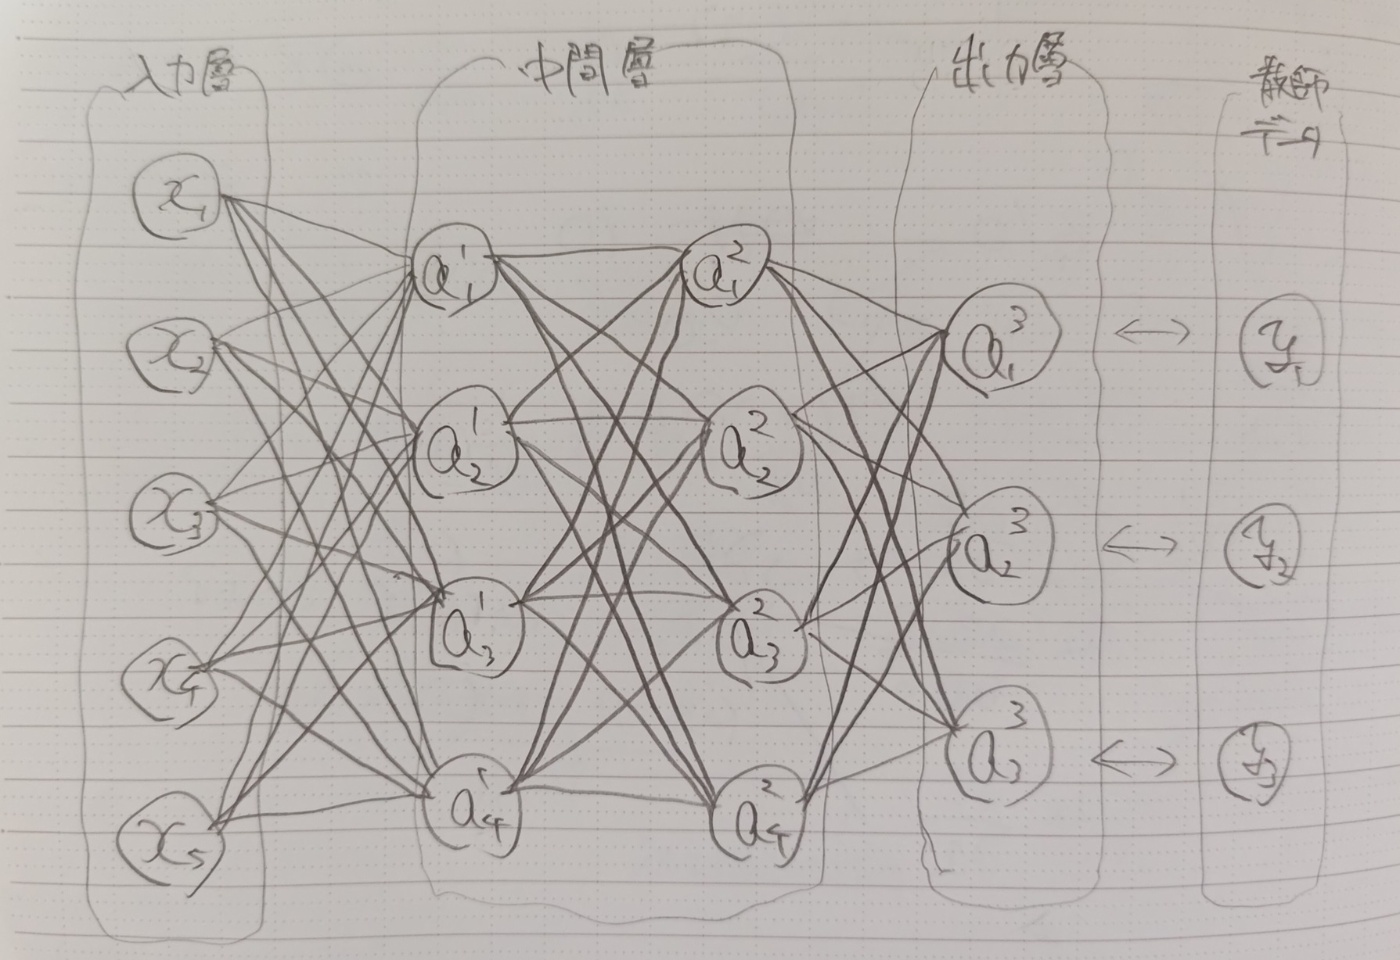 入力層
中間層
出力層
教師
データ
x₁
x₂
x₃
x₄
x₅
a₁¹
a₂¹
a₃¹
a₄¹
a₁²
a₂²
a₃²
a₄²
a₁³
a₂³
a₃³
y₁
y₂
y₃